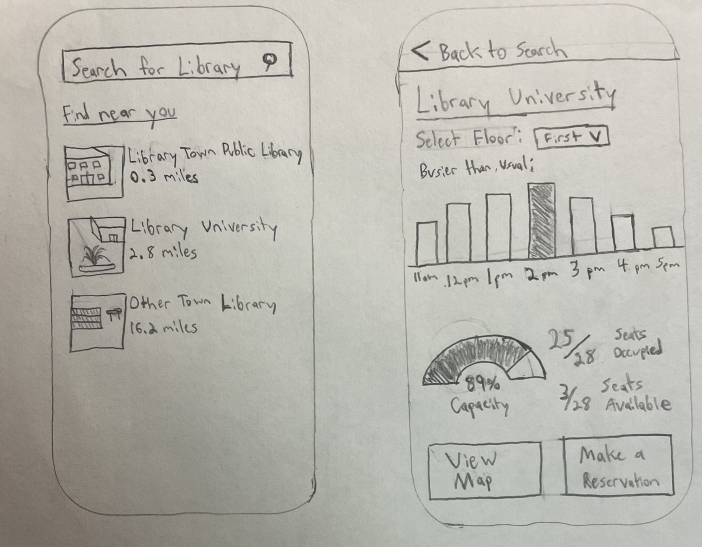 Search for Library
Find near you
Library Town Public Library
0.3 miles
Library University
2.8 miles
Other Town Library
16.2 miles
< Back to Search
Library University
Select Floor: First V
Busier than usual:
11am 12pm 1pm 2pm 3pm 4pm 5pm
89%
Capacity
25/28 Seats
Occupied
3/28 Seats
Available
View
Map
Make a
Reservation